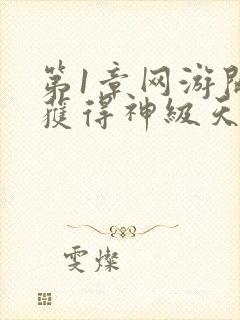 第1章网游開
獲得神級天
雯燦